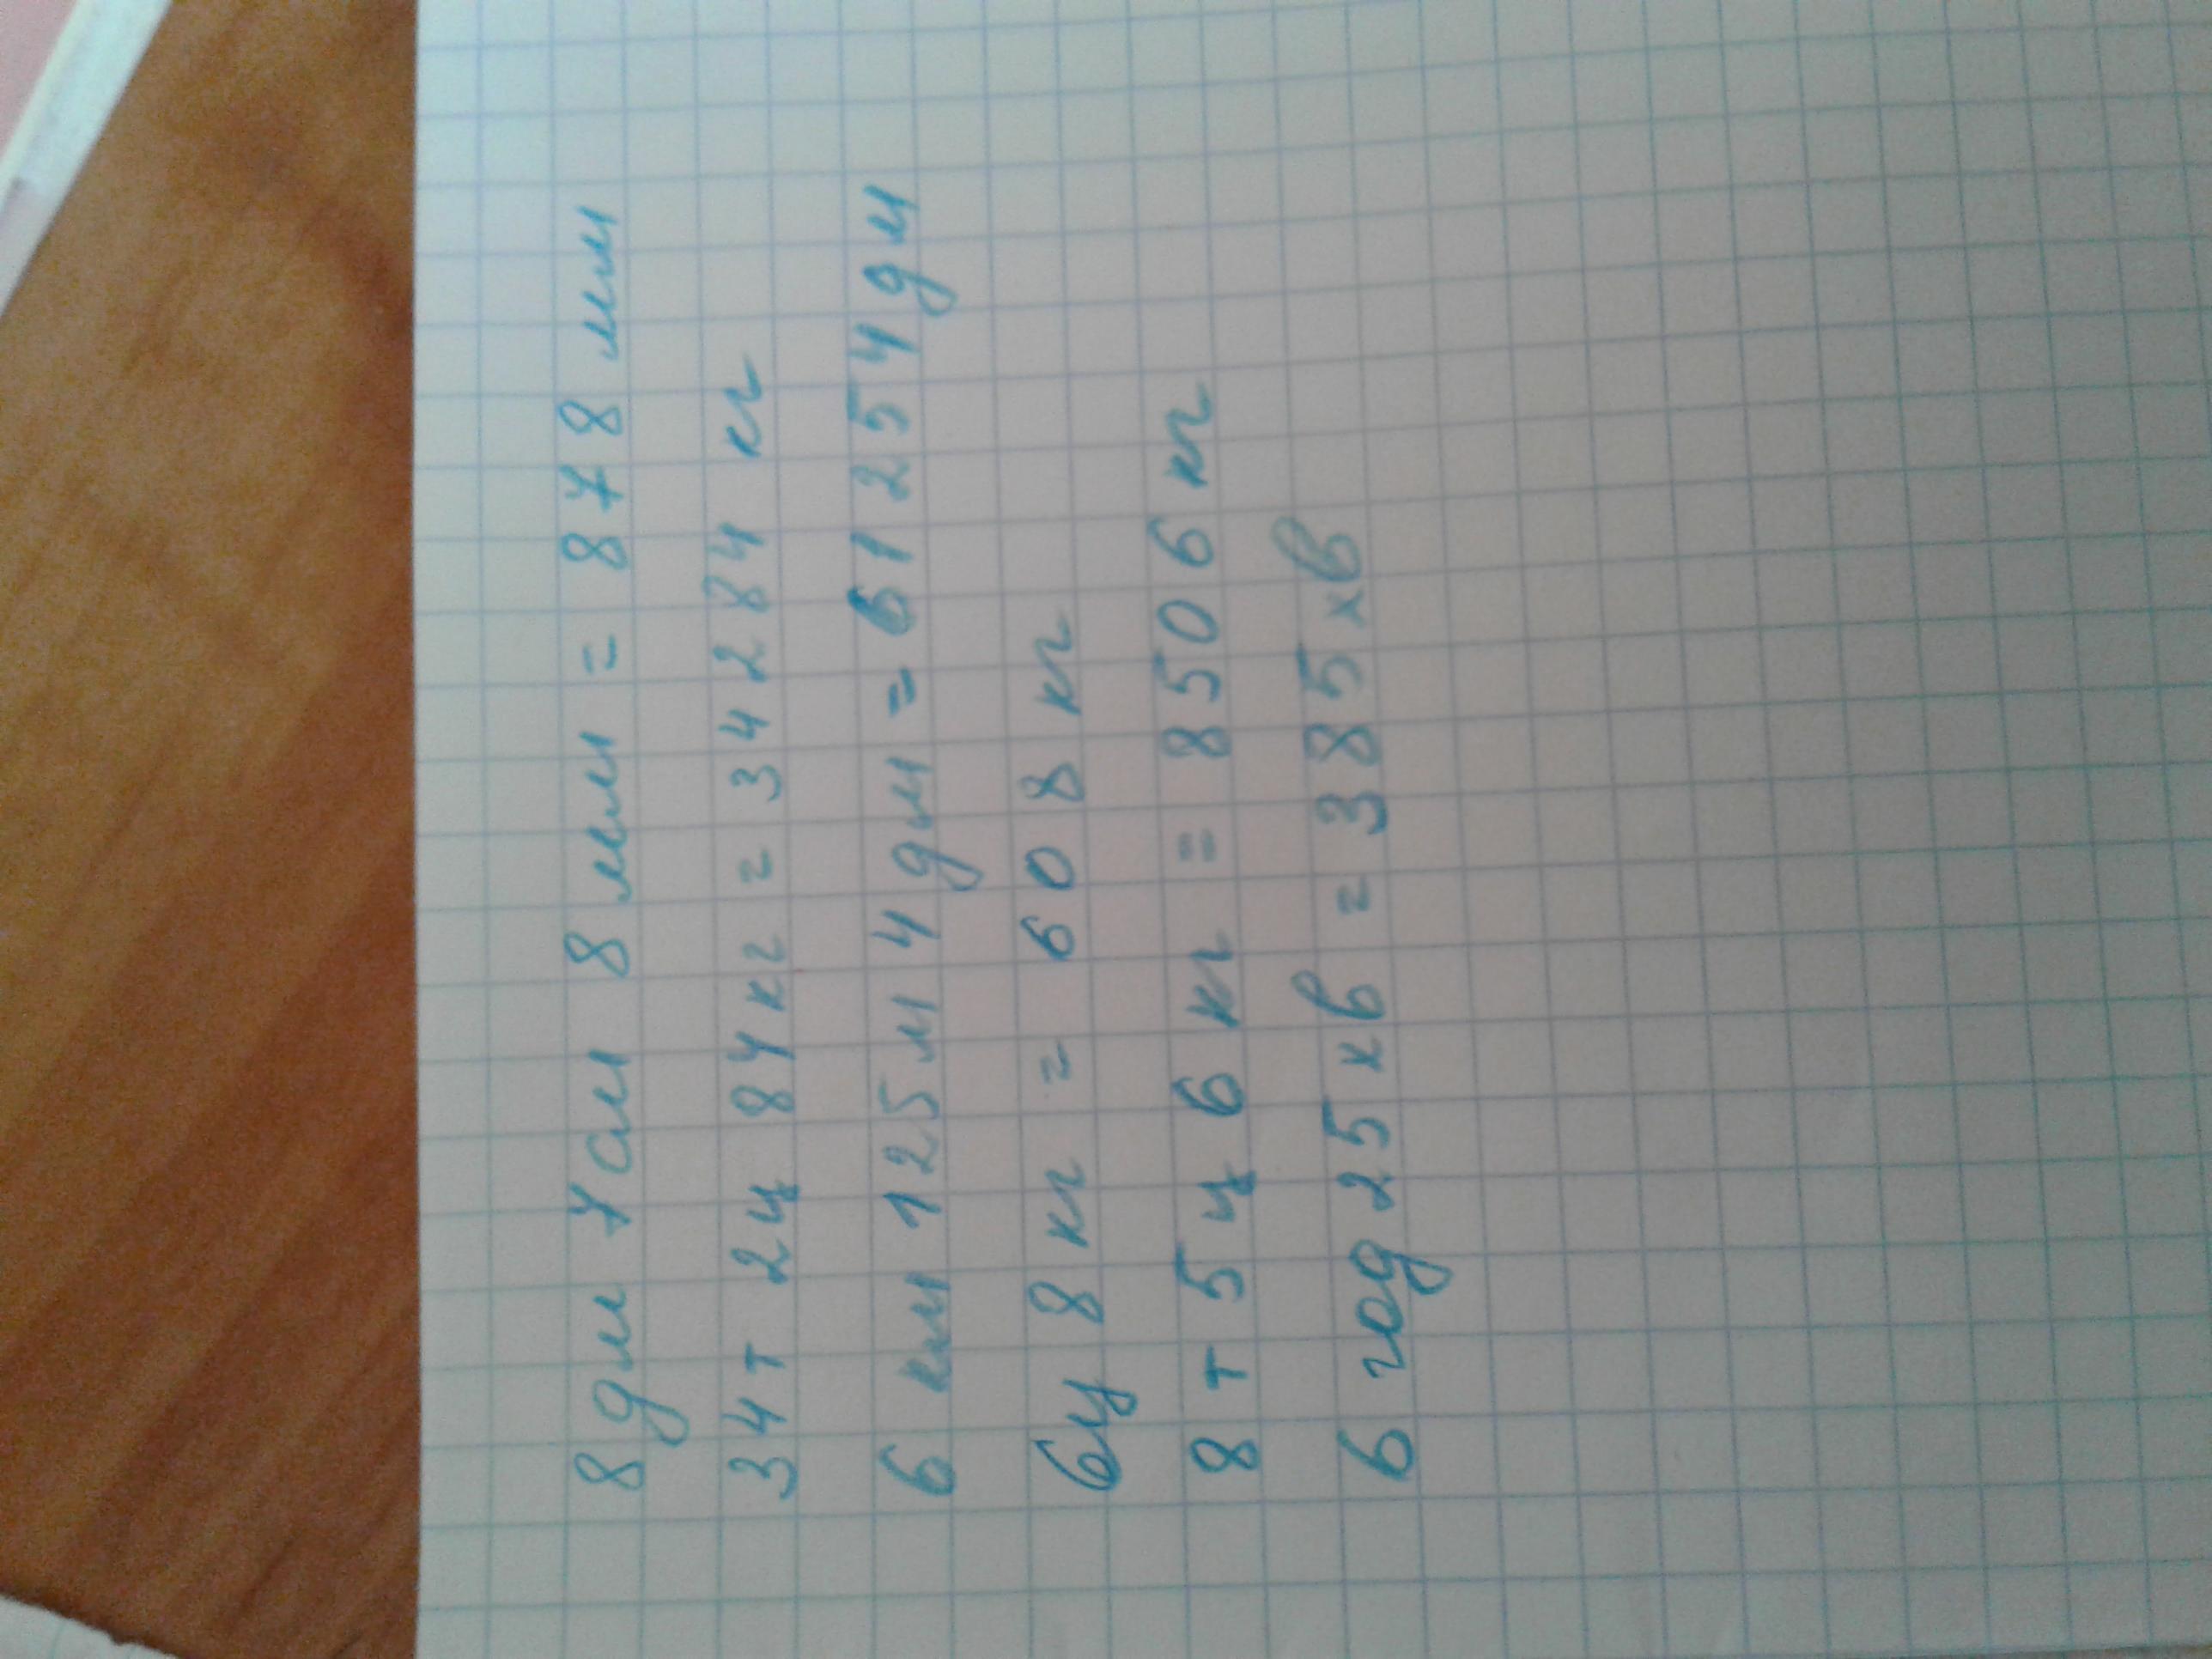 8 дм 7 см 8 мм = 878 мм
34 т 2 ц 84 кг = 34284 кг
6 км 125 м 4 дм = 61254 дм
6 ц 8 кг = 608 кг
8 т 5 ц 6 кг = 8506 кг
6 год 25 хв = 385 хв